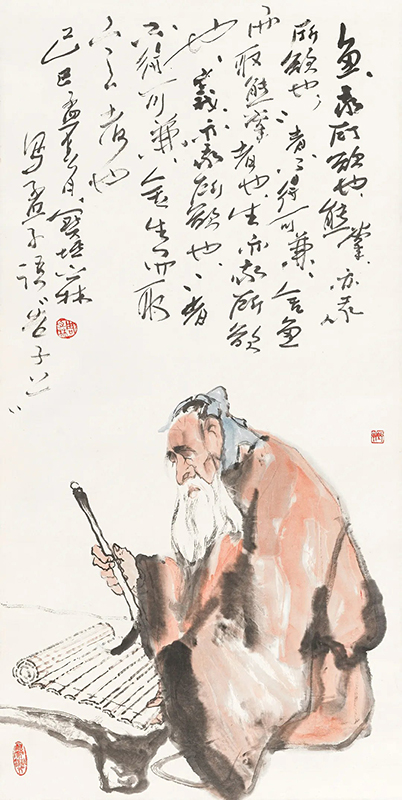 魚、我所欲也、熊掌、亦我
所欲也、二者不得可兼、舍魚
而取熊掌者也生亦我所欲
也、義亦我所欲也、二者
不得可兼、舍生而取
義者也
己巳孟春月
写孟子语